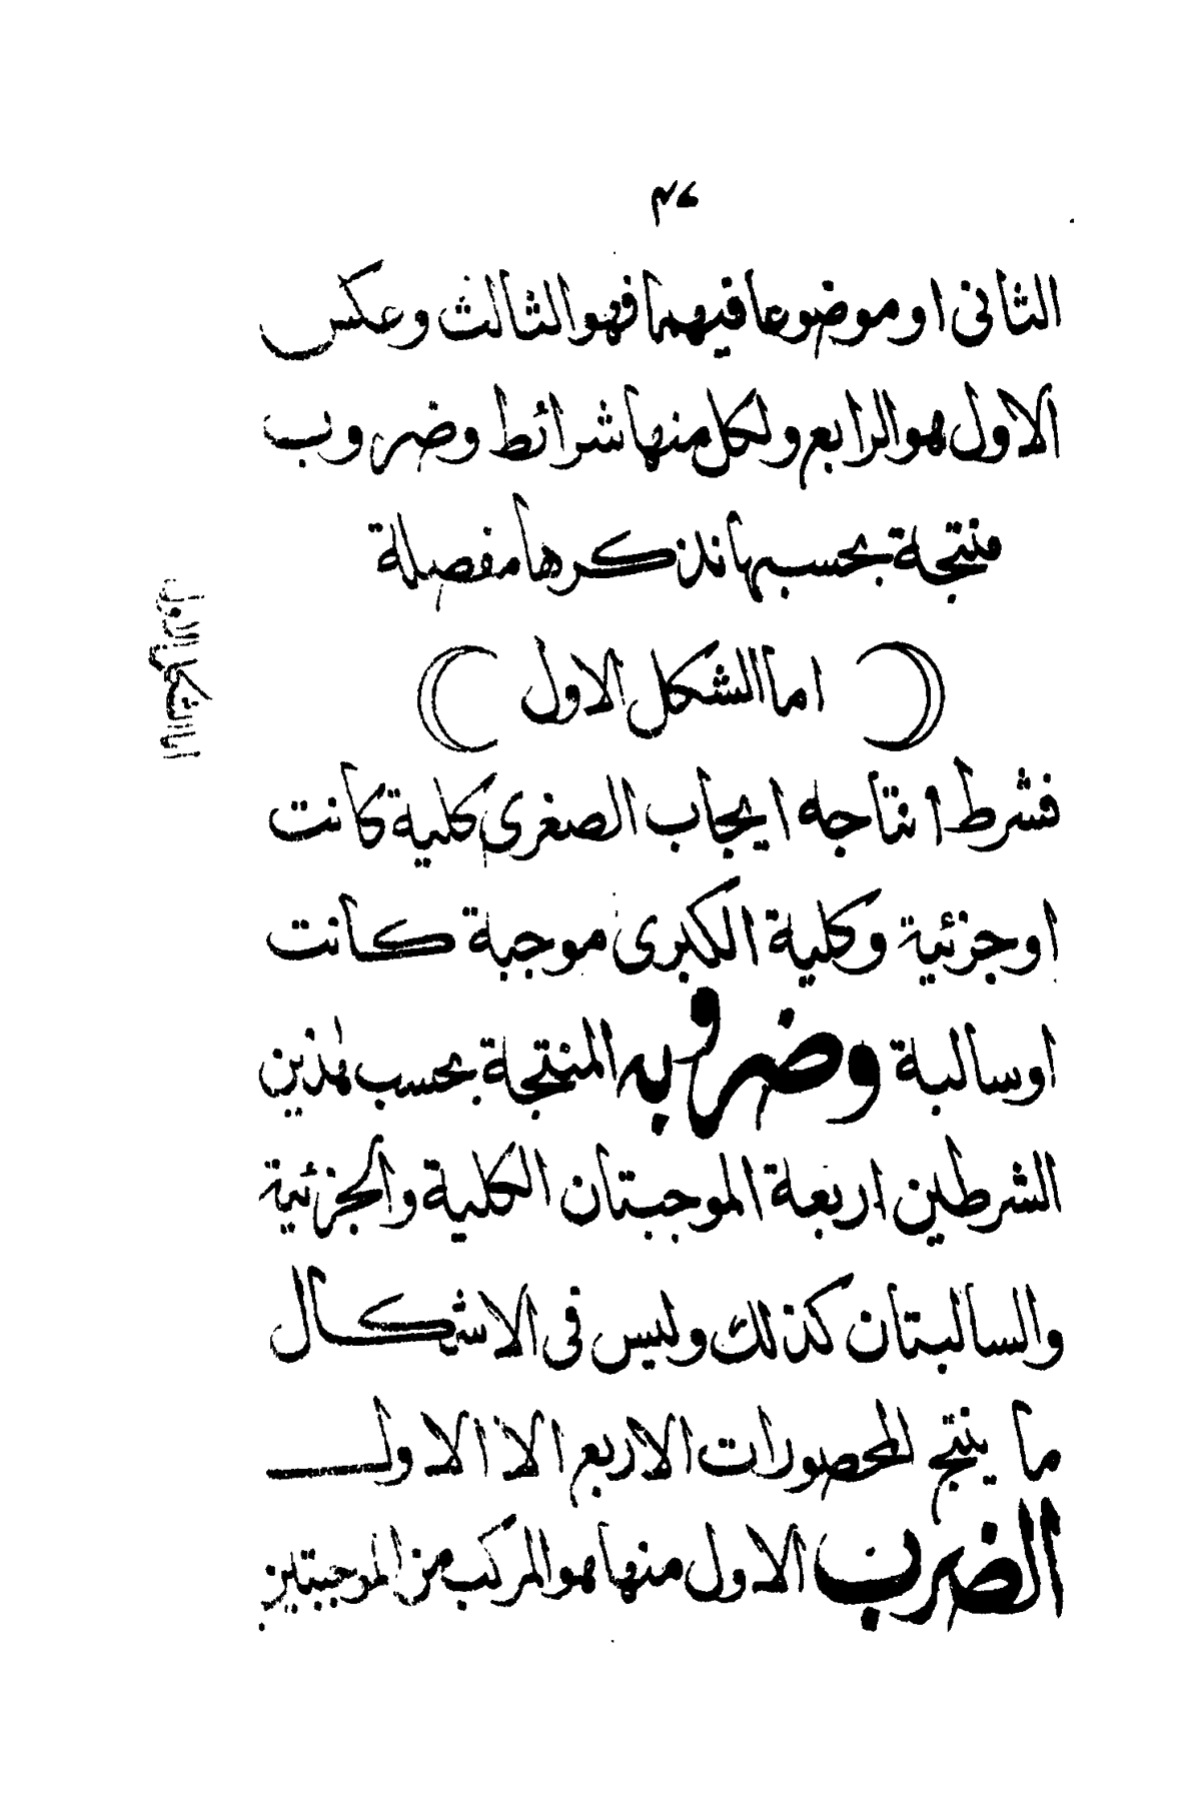 ٤٧
الثانى او موضوعا فيهما فهو الثالث وعكس
الاول هو الرابع ولكل منها شرائط وضروب
منتجة بحسبها نذكرها مفصلة
اما الشكل الاول
( اما الشكل الاول )
فشرط انتاجه ايجاب الصغرى كلية كانت
او جزئية وكلية الكبرى موجبة كانت
او سالبة وضروبه المنتجة بحسب هذين
الشرطين اربعة الموجبتان الكلية والجزئية
والسالبتان كذلك وليس فى الاشكال
ما ينتج المحصورات الاربع الا الاول
الضرب الاول منها هو المركب من الموجبتين